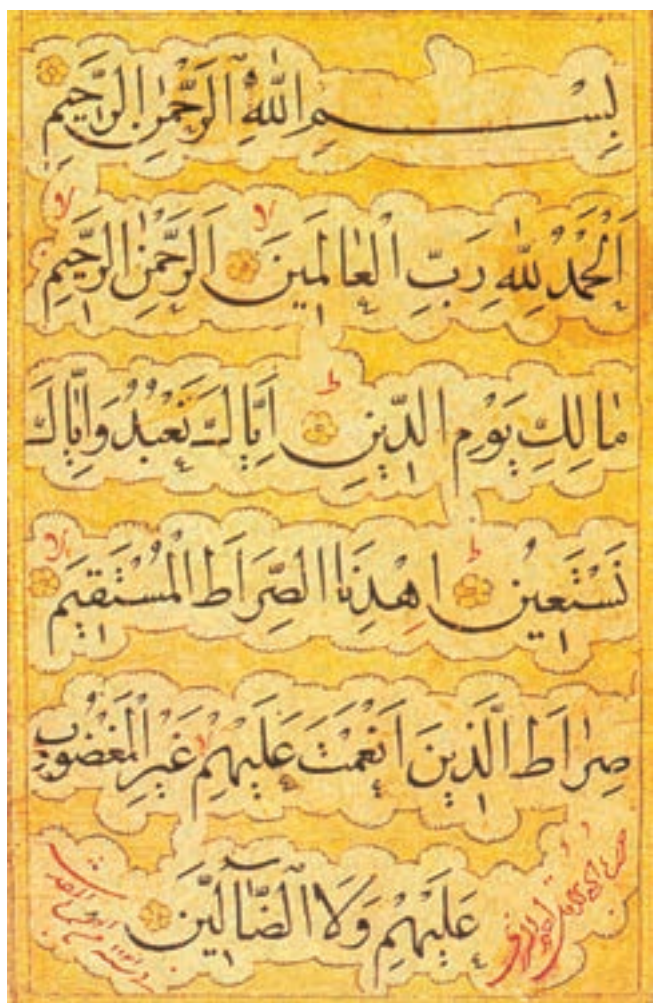 بِسْمِ اللّٰهِ الرَّحْمٰنِ الرَّحِيمِ
اَلْحَمْدُ لِلّٰهِ رَبِّ الْعَالَمِينَ اَلرَّحْمٰنِ الرَّحِيمِ
مَالِكِ يَوْمِ الدِّينِ اِيَّاكَ نَعْبُدُ وَاِيَّاكَ
نَسْتَعِينُ اهْدِنَا الصِّرَاطَ الْمُسْتَقِيمَ
صِرَاطَ الَّذِينَ اَنْعَمْتَ عَلَيْهِمْ غَيْرِ الْمَغْضُوبِ
عَلَيْهِمْ وَلَا الضَّٓالِّينَ